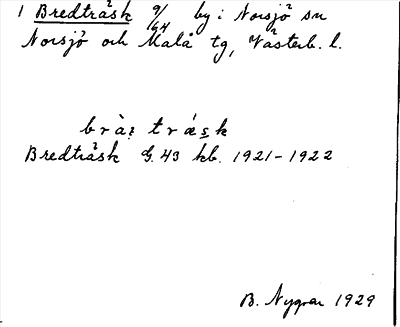 1 Bredträsk 9/64 by i Norsjö sn
Norsjö och Malå tg, Västerb. l.
Bredträsk G. 43 kb. 1921-1922
B. Nygren 1929